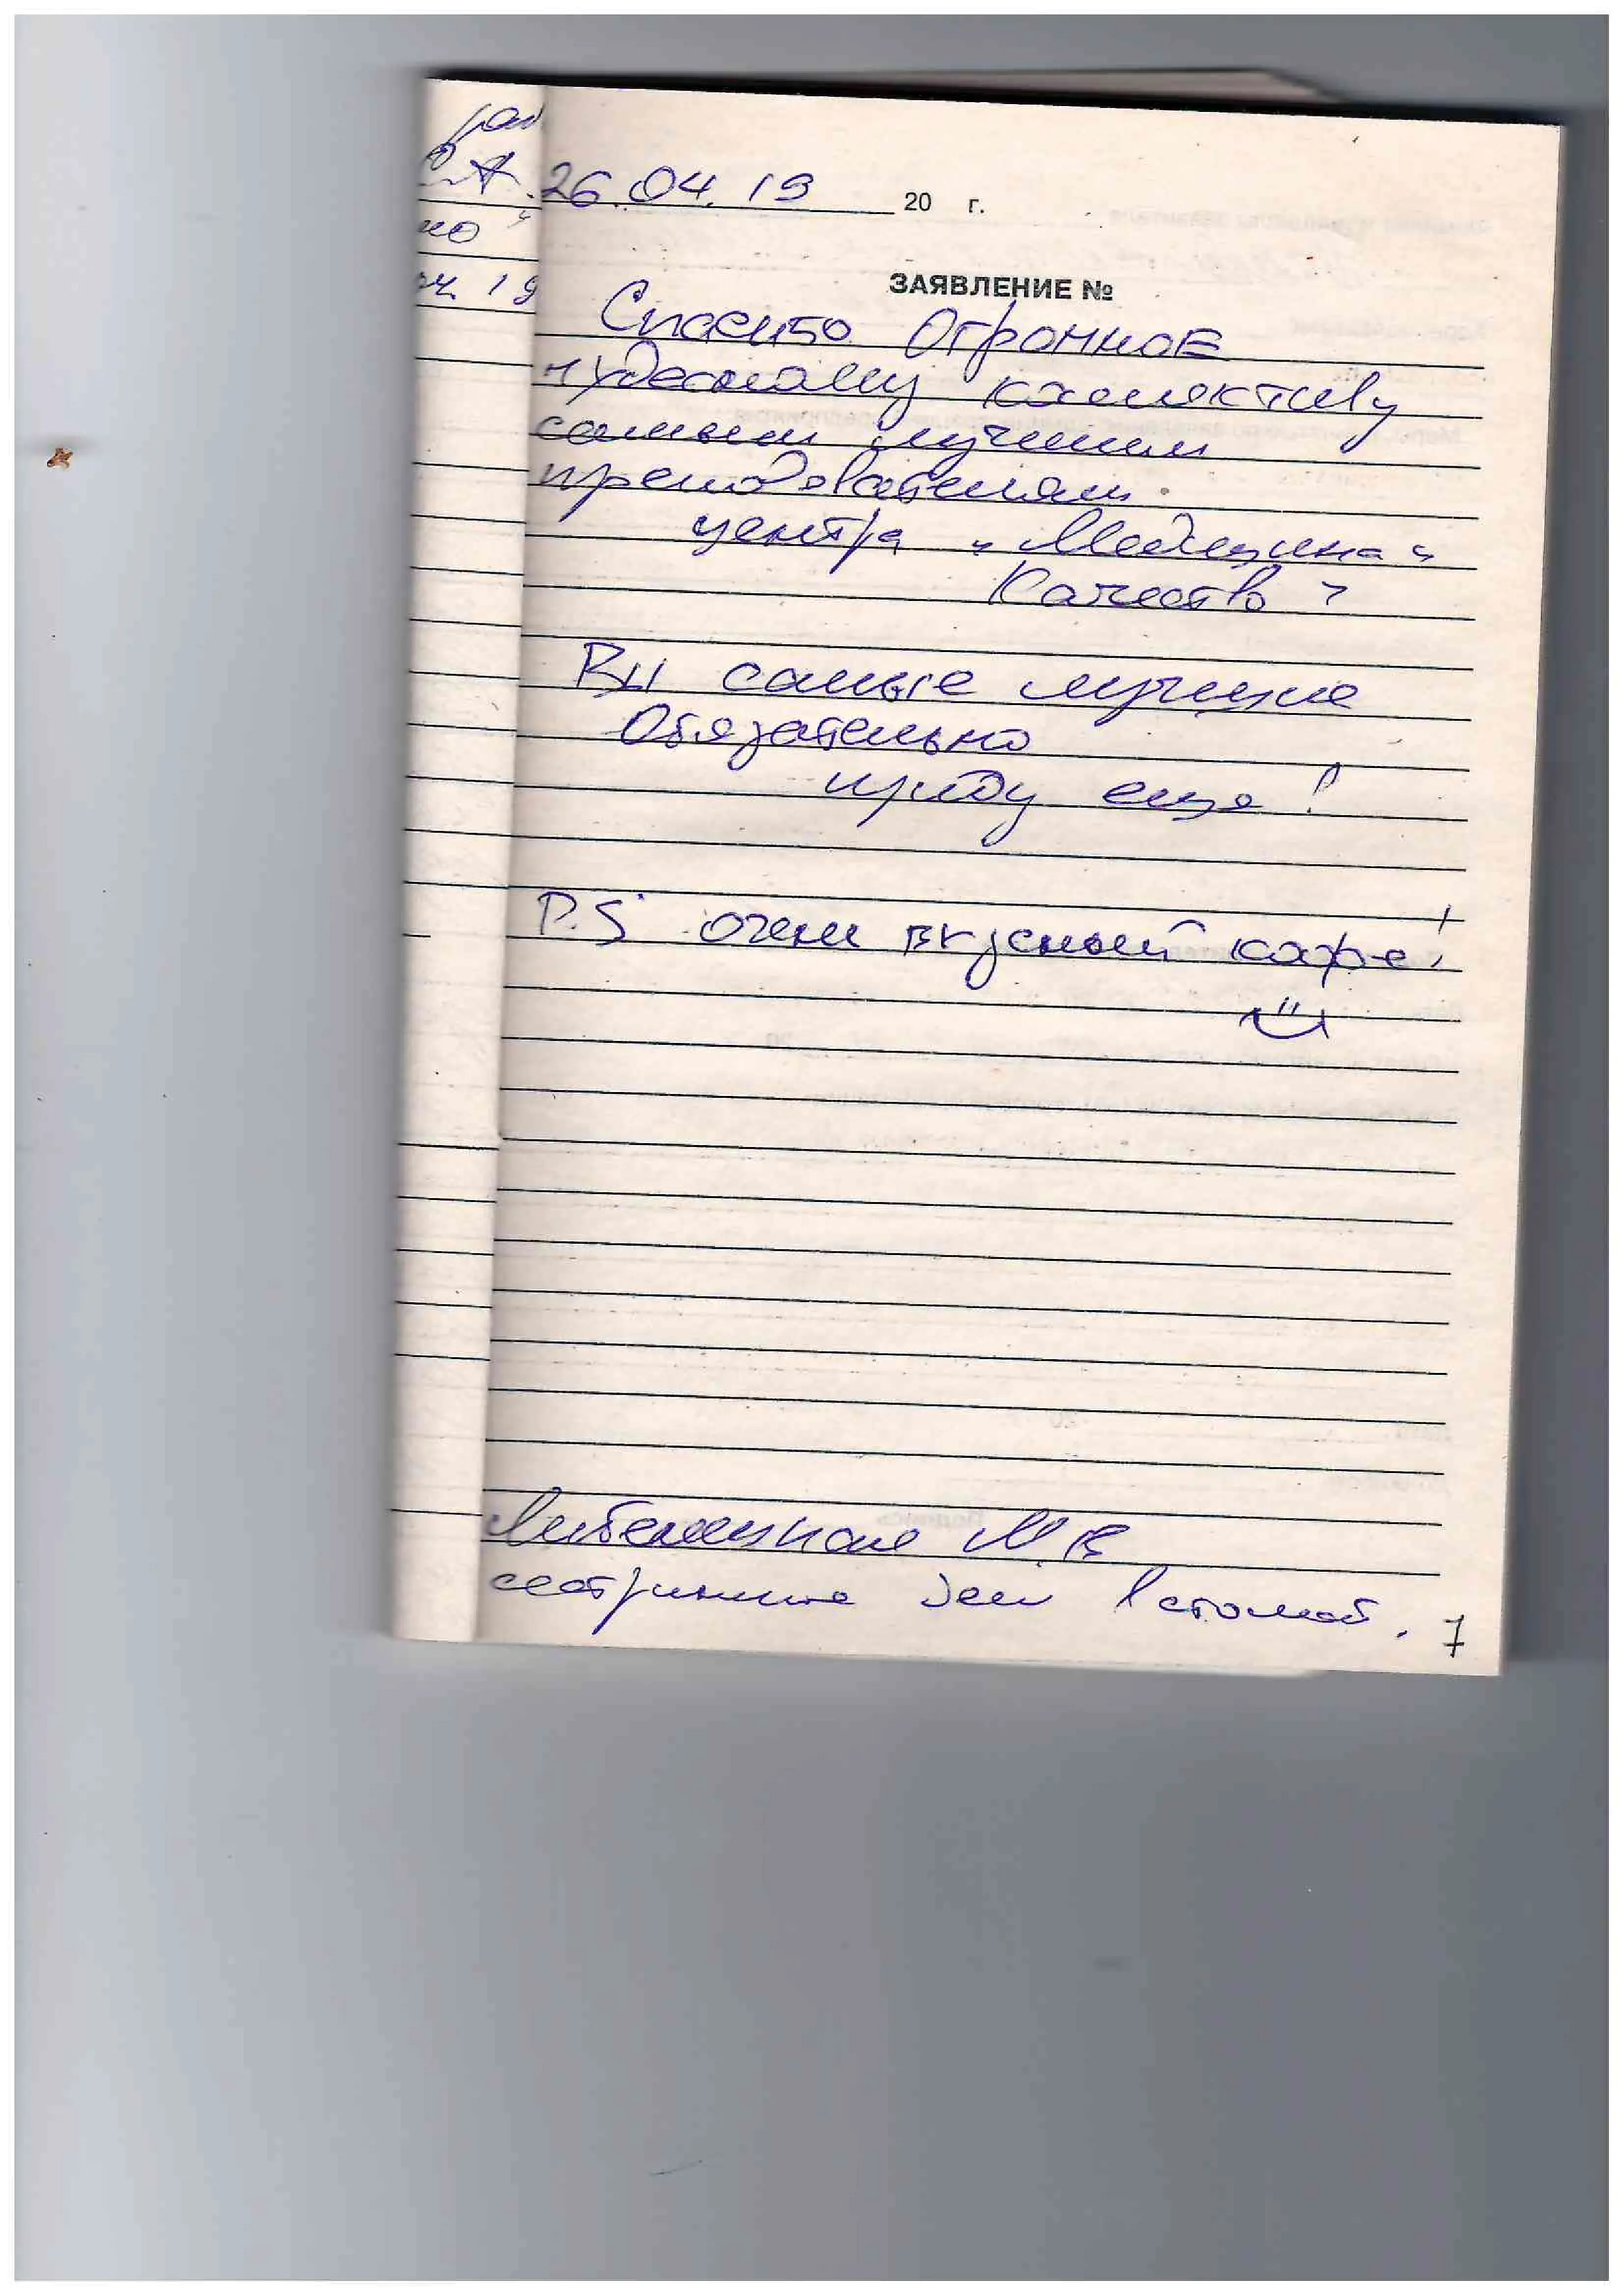 26.04.19 20 г.
ЗАЯВЛЕНИЕ №
Спасибо огромное
чудесному коллективу
самым лучшим
преподавателям
центра "Медицина
Качество"
Вы самые лучшие
Обязательно
приду еще!
P.S очень вкусный кофе!
М.В
сестринское дело в стомат.
7